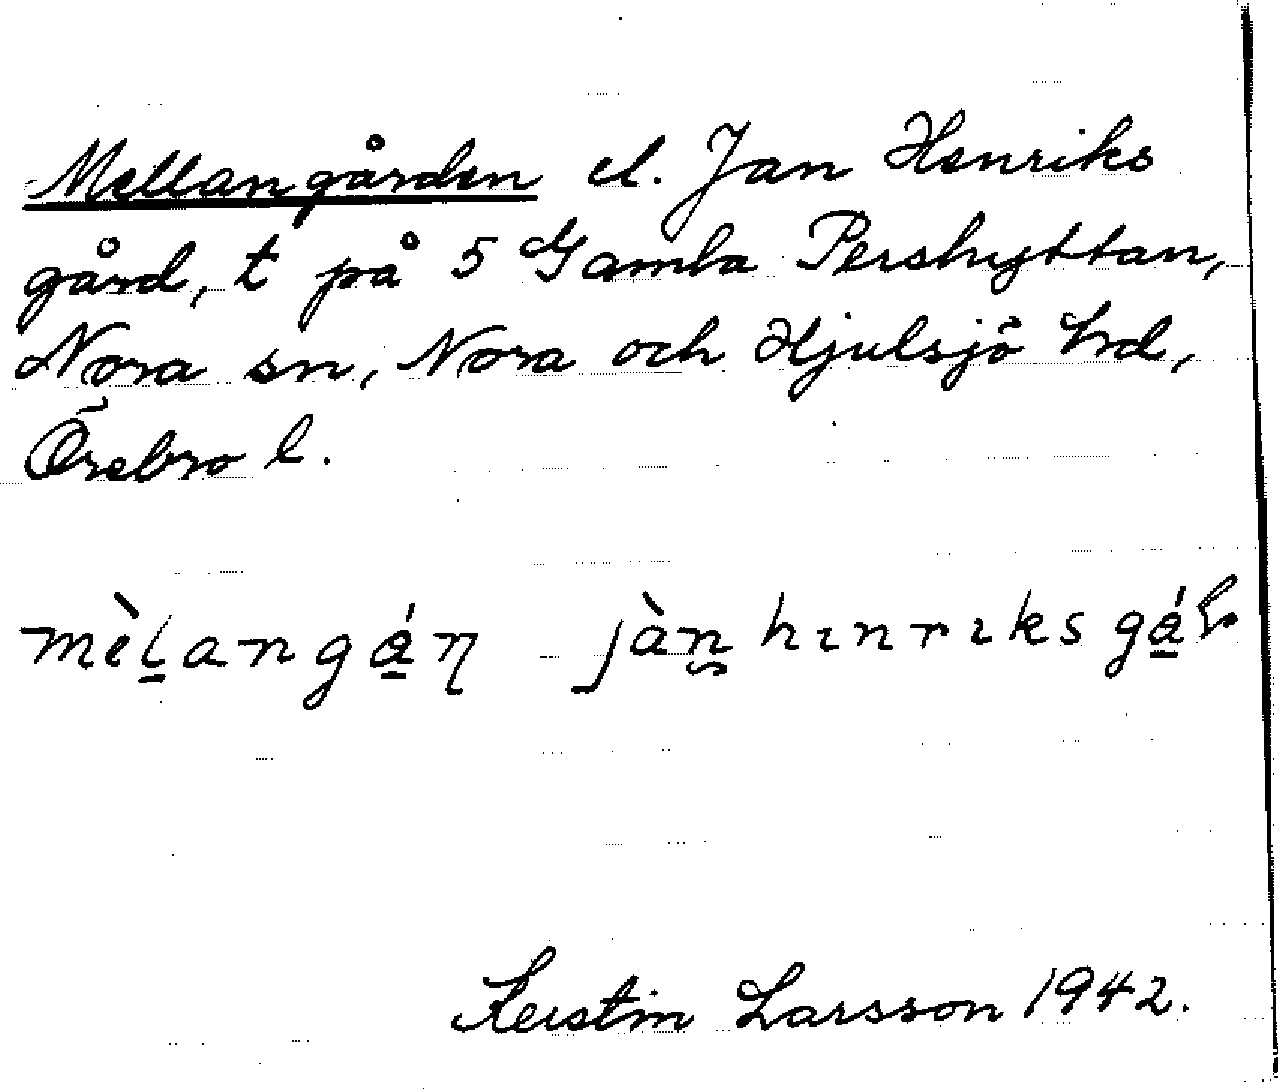 Mellangården el. Jan Henriks
gård, t på 5 Gamla Pershyttan,
Nora sn, Nora och Hjulsjö hrd,
Örebro l.
mèl̠angá̠ɳ jàn̰ hınrıksgá̠ɖ
Kerstin Larsson 1942.